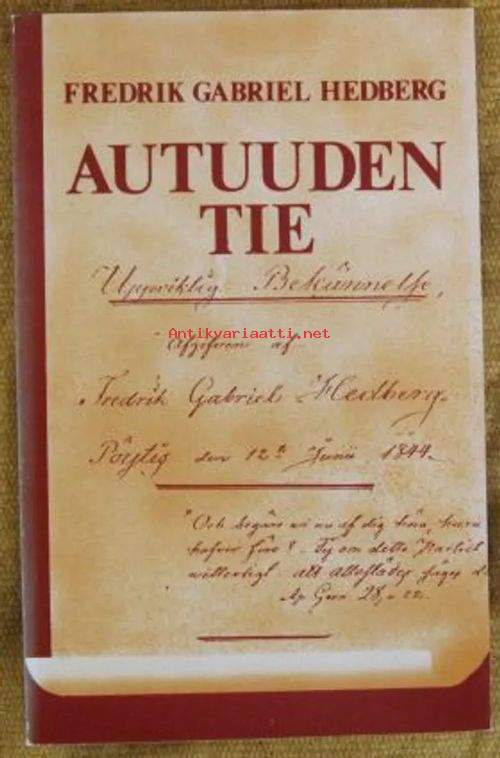 FREDRIK GABRIEL HEDBERG
AUTUUDEN
TIE
Uppriktig Bekännelse,
Antikvariaatti.net
Afgifven af
Fredrik Gabriel Hedberg.
Pöytis den 12te Junii 1844.
"Och begäre wi nu af dig höra, huru
håller före? Ty om detta Partiet
witterligt att allestädes säges
Ap. Gern. 28, v. 22.